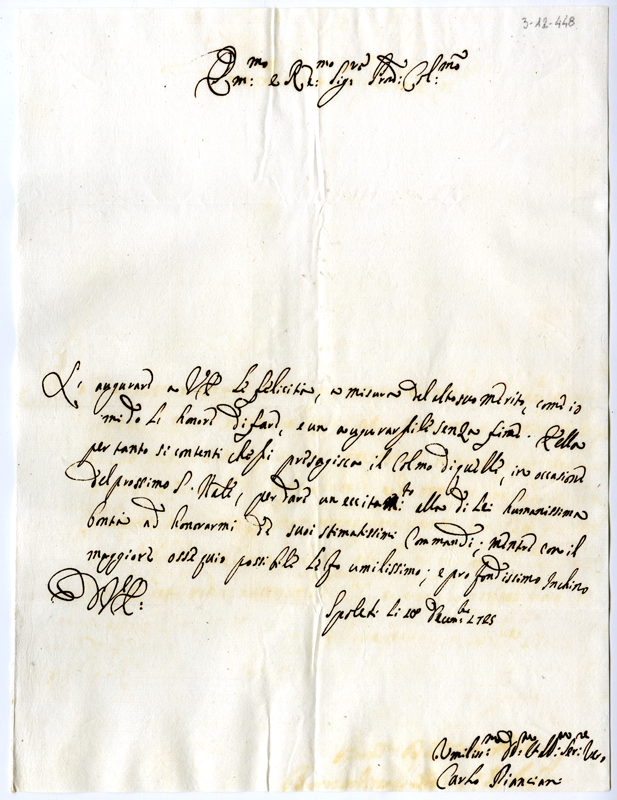 3-12-448
Em:mo e Re:mo Sig:re Prone: Col:mo
L' augurare a VE le felicità, a misura del alto suo merito, come io
mi do l' honore di fare, e un augurarsile senza fine. Ella
per tanto si contenti ch'li presagisca il colmo di quelle, in occasione
del prossimo S. Nate, per dare un eccitam:to ella di Lei humanissima
bontà ad honorarmi de suoi stimatissimi Commandi; mentre con il
maggiore ossequio possibile le fo umilissimo; e profondissimo Inchino
DVE:
Spoleti li 18 Decem:bre 1725
Umiliss:mo D:mo et Obl:mo Ser:re Vero
Carlo Pianciani